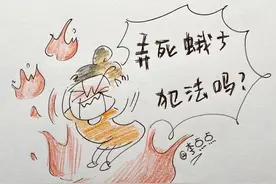 弄死蛾子
犯法吗?
@李点点